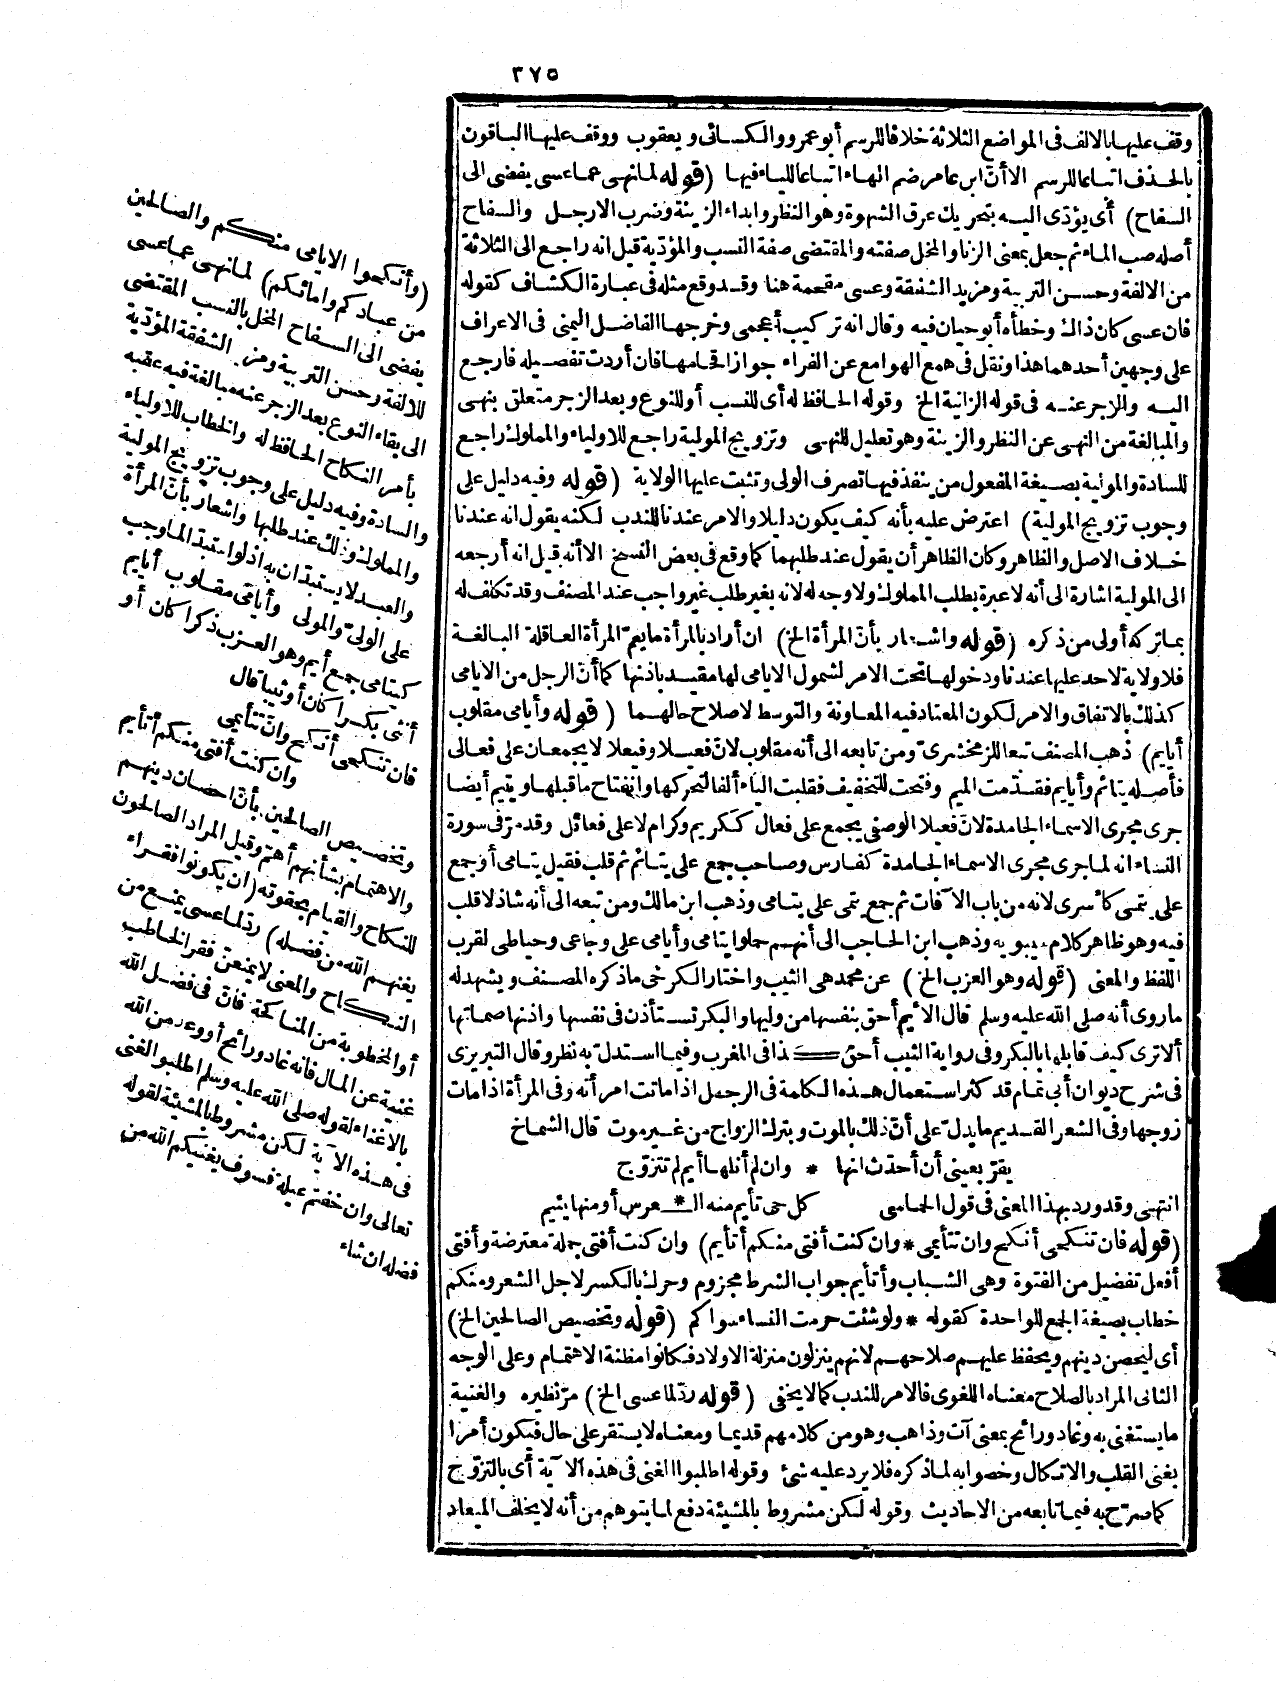 ٣٧٥
وقف عليها بالالف فى المواضع الثلاثة خلافا للرسم أبو عمرو والكسائى ويعقوب ووقف عليها الباقون
بالحذف اتباعا للرسم الا أنّ ابن عامر ضم الهاء اتباعا للياء فيها (قوله لما نهى عما عسى يفضى الى
السفاح) أى يؤدّى اليه بتحريك عرق الشهوة وهو النظر وابداء الزينة وضرب الارجل والسفاح
أصله صب الماء ثم جعل بمعنى الزنا والمخل صفته والمقتضى صفة النسب والمؤدّية قيل انه راجع الى الثلاثة
من الالفة وحسن التربية ومزيد الشفقة وعسى مقحمة هنا وقد وقع مثله فى عبارة الكشاف كقوله
فان عسى كان ذاك وخطأه أبو حيان فيه وقال انه تركيب أعجمى وخرجها الفاضل اليمنى فى الاعراف
على وجهين أحدهما هذا ونقل فى همع الهوامع عن الفراء جواز اقحامها فان أردت تفصيله فارجع
اليه والزجر عنه فى قوله الزانية الخ وقوله الحافظ له أى للنسب أو للنوع وبعد الزجر متعلق بنهى
والمبالغة من النهى عن النظر والزينة وهو تعليل للنهى وتزويج المولية راجع للاولياء والمملوك راجع
للسادة والمولية بصيغة المفعول من ينفذ فيها تصرف الولى وتثبت عليها الولاية (قوله وفيه دليل على
وجوب تزويج المولية) اعترض عليه بأنه كيف يكون دليلا والامر عندنا للندب لكنه يقول انه عندنا
خلاف الاصل والظاهر وكان الظاهر أن يقول عند طلبهما كما وقع فى بعض النسخ الا أنه قيل انه أرجعه
الى المولية اشارة الى أنه لا عبرة بطلب المملوك ولا وجه له لانه بغير طلب غير واجب عند المصنف وقد تكلف له
بما تركه أولى من ذكره (قوله واشعار بأنّ المرأة الخ) ان أراد بالمرأة ما يعمّ المرأة العاقلة البالغة
فلا ولاية لاحد عليها عندنا ودخولها تحت الامر لشمول الايامى لها مقيد باذنها كما أنّ الرجل من الايامى
كذلك بالاتفاق والامر لكون المعتاد فيه المعاونة والتوسط لاصلاح حالهما (قوله وأيامى مقلوب
أيايم) ذهب المصنف تبعا للزمخشرىّ ومن تابعه الى أنه مقلوب لانّ فعيلا وفيعلا لا يجمعان على فعالى
فأصله يتائم وأيايم فقدّمت الميم وفتحت للتخفيف فقلبت الياء ألفا لتحركها وانفتاح ما قبلها ويتيم أيضا
جرى مجرى الاسماء الجامدة لانّ فعيلا الوصفى يجمع على فعال ككريم وكرام لا على فعائل وقد مرّ فى سورة
النساء انه لما جرى مجرى الاسماء الجامدة كفارس وصاحب جمع على يتائم ثم قلب فقيل يتامى أو جمع
على يتمى كأسرى لانه من باب الآفات ثم جمع يتمى على يتامى وذهب ابن مالك ومن تبعه الى أنه شاذ لا قلب
فيه وهو ظاهر كلام سيبويه وذهب ابن الحاجب الى أنهم حملوا يتامى وأيامى على وجاعى وحباطى لقرب
اللفظ والمعنى (قوله وهو العزب الخ) عن محمد هى الثيب واختار الكرخى ما ذكره المصنف ويشهد له
ما روى أنه صلى الله عليه وسلم قال الأيم أحق بنفسها من وليها والبكر تستأذن فى نفسها واذنها صماتها
ألا ترى كيف قابلها بالبكر وفى رواية الثيب أحق كذا فى المغرب وفيما استدلّ به نظر وقال التبريزى
فى شرح ديوان أبى تمام قد كثر استعمال هذه الكلمة فى الرجل اذا ماتت امرأته وفى المرأة اذا مات
زوجها وفى الشعر القديم ما يدلّ على أنّ ذلك بالموت وبترك الزواج من غير موت قال الشماخ
يقرّ بعينى أن أحدّث انها * وان لم أنلها أيم لم تتزوّج
انتهى وقد ورد بهذا المعنى فى قول الحماسى كل حى تأيم منه الـ * عرس أو منها يئيم
(قوله فان تنكحى أنكح وان تتأيمى * وان كنت أفتى منكم أتأيم) وان كنت أفتى جملة معترضة وأفتى
أفعل تفضيل من الفتوة وهى الشباب وأتأيم جواب الشرط مجزوم وحرك بالكسر لاجل الشعر ومنكم
خطاب بصيغة الجمع للواحدة كقوله * ولو شئت حرمت النساء سواكم (قوله وتخصيص الصالحين الخ)
أى ليحصن دينهم ويحفظ عليهم صلاحهم لانهم ينزلون منزلة الاولاد فكانوا مظنة الاهتمام وعلى الوجه
الثانى المراد بالصلاح معناه اللغوى فالامر للندب كما لا يخفى (قوله ردّ لما عسى الخ) مرّ نظيره والغنية
ما يستغنى به وغاد ورائح بمعنى آت وذاهب وهو من كلامهم قديما ومعناه لا يستقر على حال فيكون أمرا
بغنى القلب والاتكال وخصوا به لما ذكره فلا يرد عليه شئ وقوله اطلبوا الغنى فى هذه الآية أى بالتزوّج
كما صرّح به فيما تابعه من الاحاديث وقوله لكن مشروط بالمشيئة دفع لما يتوهم من أنه لا يخلف الميعاد
(وأنكحوا الايامى منكم والصالحين
من عبادكم وامائكم) لما نهى عما عسى
يفضى الى السفاح المخل بالنسب المقتضى
للالفة وحسن التربية ومزيد الشفقة المؤدّية
الى بقاء النوع بعد الزجر عنه مبالغة فيه عقبه
بأمر النكاح الحافظ له والخطاب للاولياء
والسادة وفيه دليل على وجوب تزويج المولية
والمملوك وذلك عند طلبها واشعار بأنّ المرأة
والعبد لا يستبدّان به اذ لو استبدّا لما وجب
على الولىّ والمولى وأيامى مقلوب أيايم
كيتامى جمع أيم وهو العزب ذكرا كان أو
أنثى بكرا كان أو ثيبا قال
فان تنكحى أنكح وان تتأيمى
وان كنت أفتى منكم أتأيم
وتخصيص الصالحين بأنّ احصان دينهم
والاهتمام بشأنهم أهمّ وقيل المراد الصالحون
للنكاح والقيام بحقوقه (ان يكونوا فقراء
يغنهم الله من فضله) ردّ لما عسى يمنع من
النكاح والمعنى لا يمنعنّ فقر الخاطب
أو المخطوبة من المناكحة فانّ فى فضل الله
غنية عن المال فانه غاد ورائح أو وعد من الله
بالاغناء لقوله صلى الله عليه وسلم اطلبوا الغنى
فى هذه الآية لكن مشروط بالمشيئة لقوله
تعالى وان خفتم عيلة فسوف يغنيكم الله من
فضله ان شاء